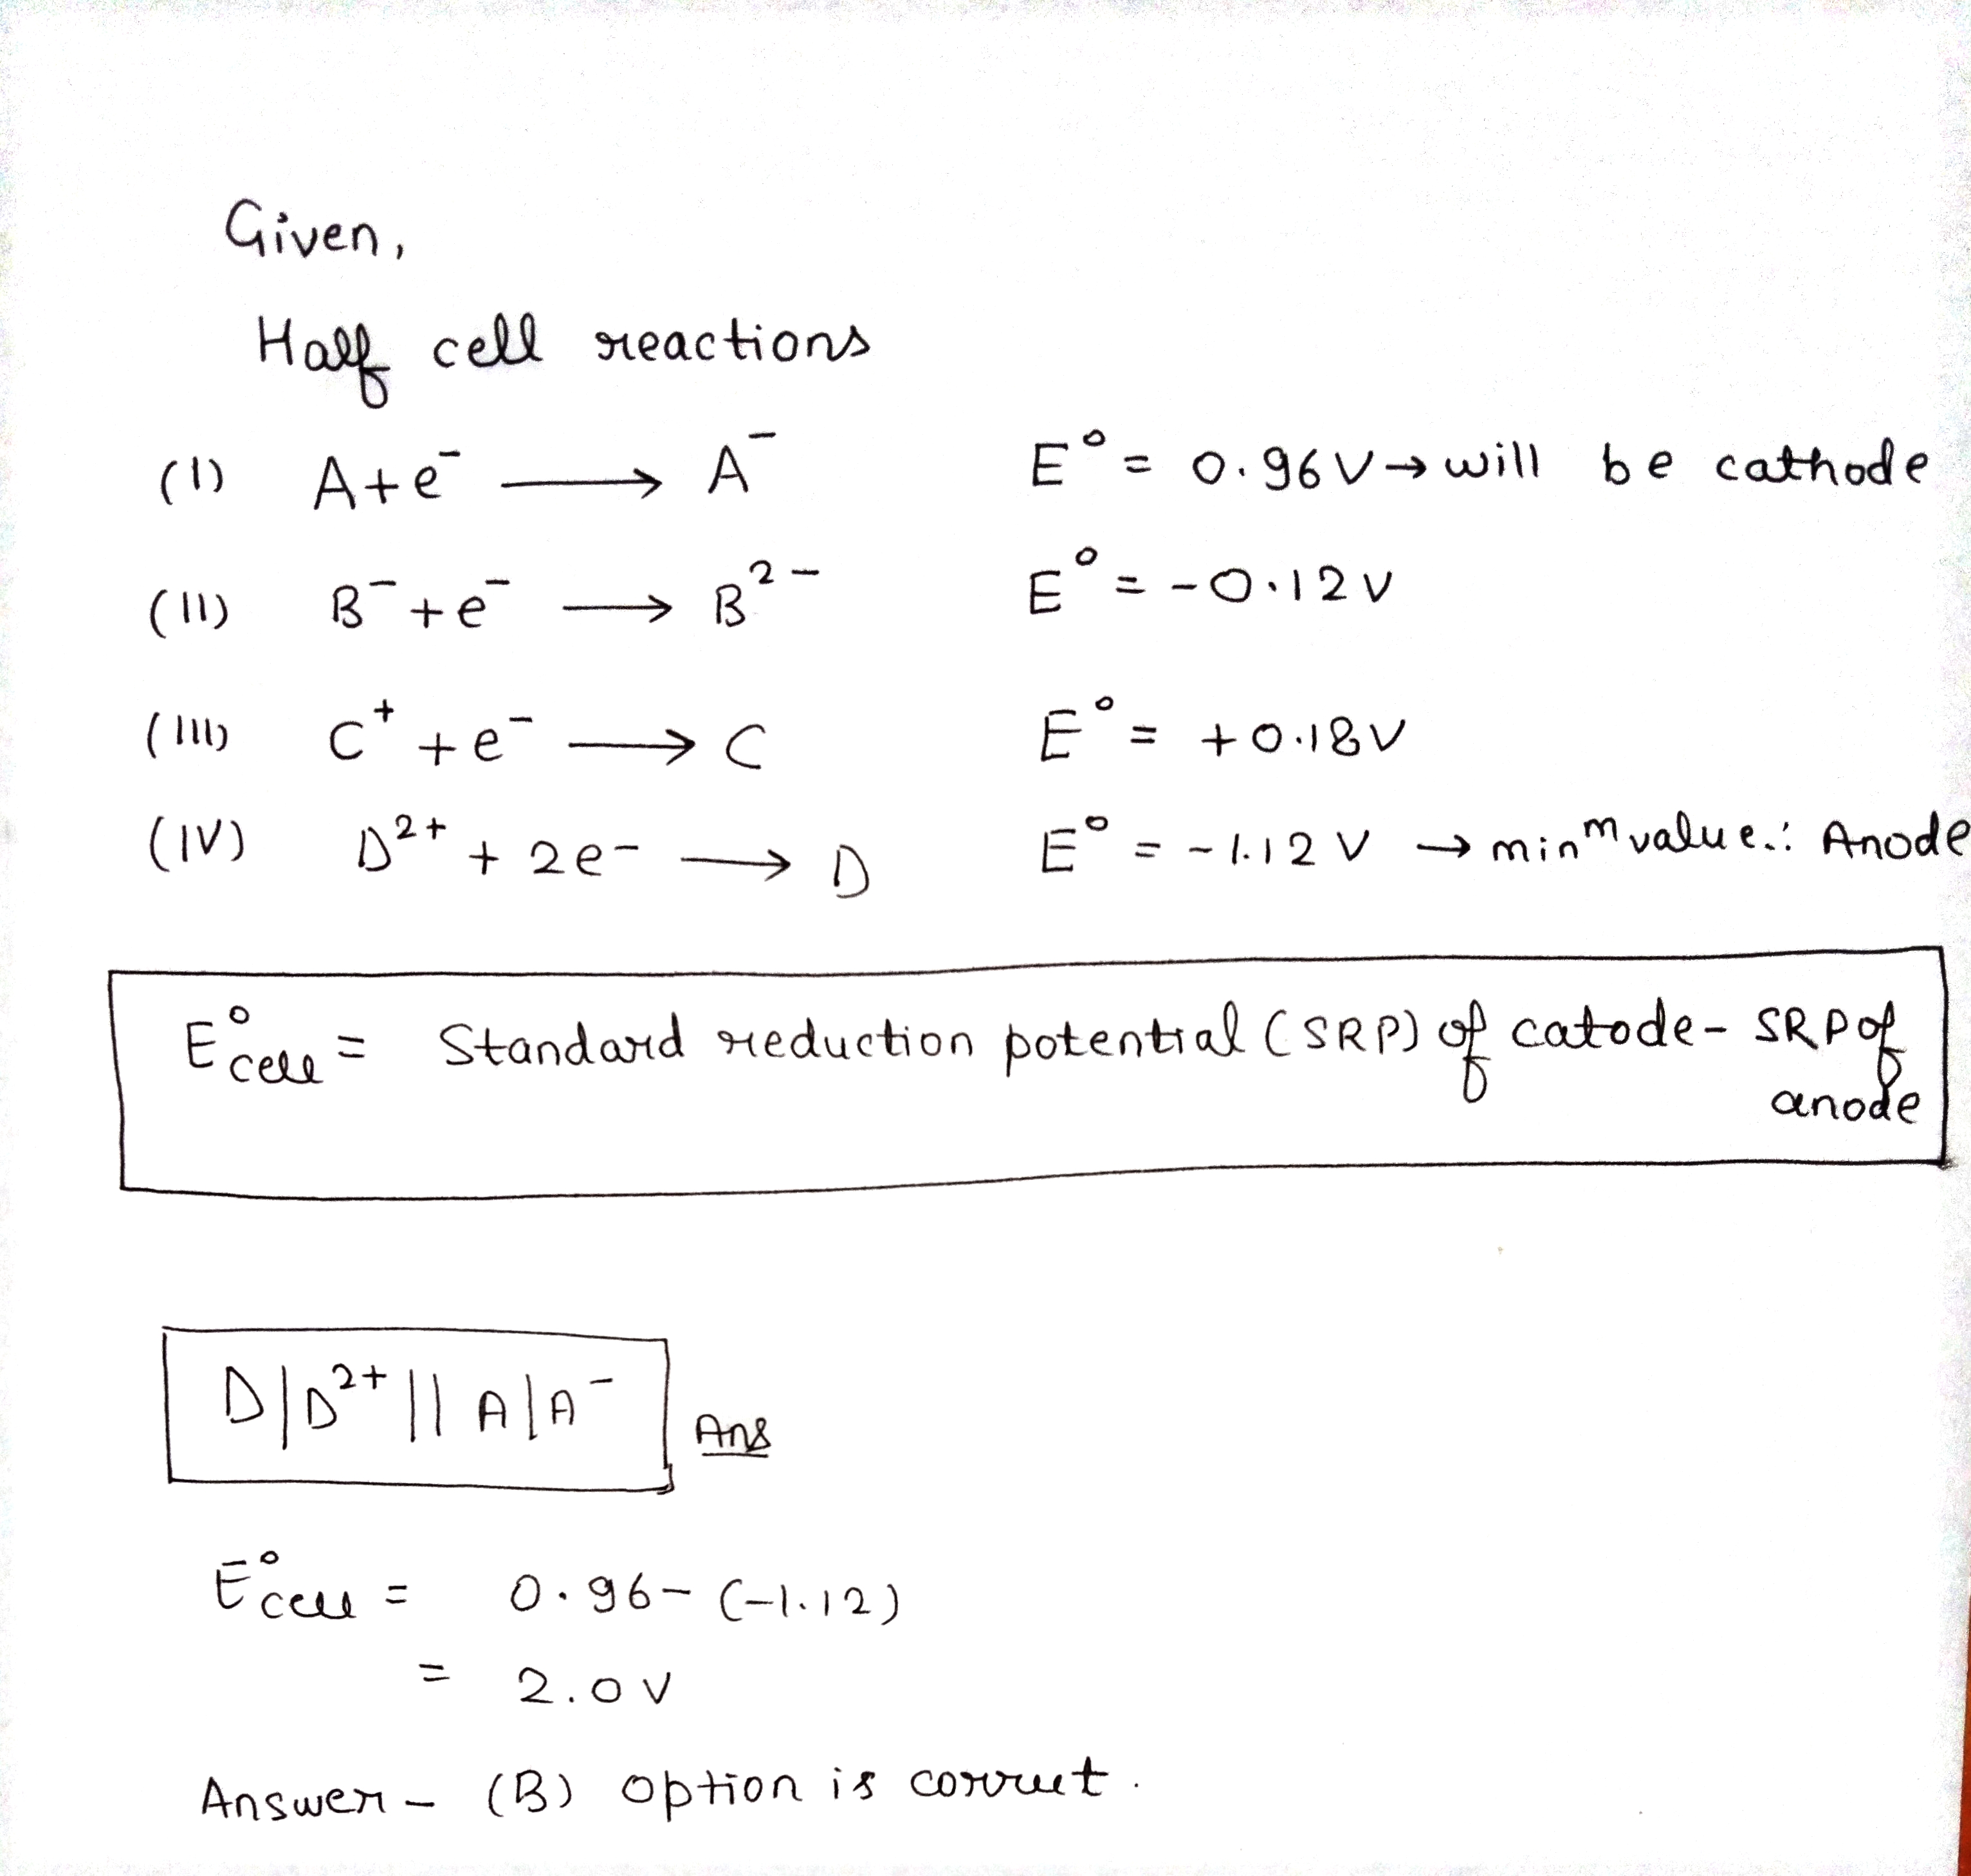 Given,
Half cell reactions
(I) A+e⁻ ⟶ A⁻ E° = 0.96V→will be cathode
(II) B⁻+e⁻ ⟶ B²⁻ E° = -0.12V
(III) C⁺+e⁻ ⟶ C E° = +0.18V
(IV) D²⁺ + 2e⁻ ⟶ D E° = -1.12V → minᵐ value ∴ Anode
E°cell = Standard reduction potential (SRP) of catode- SRP of
anode
D|D²⁺||A|A⁻ Ans
E°cell = 0.96-(-1.12)
= 2.0V
Answer - (B) option is corruct.